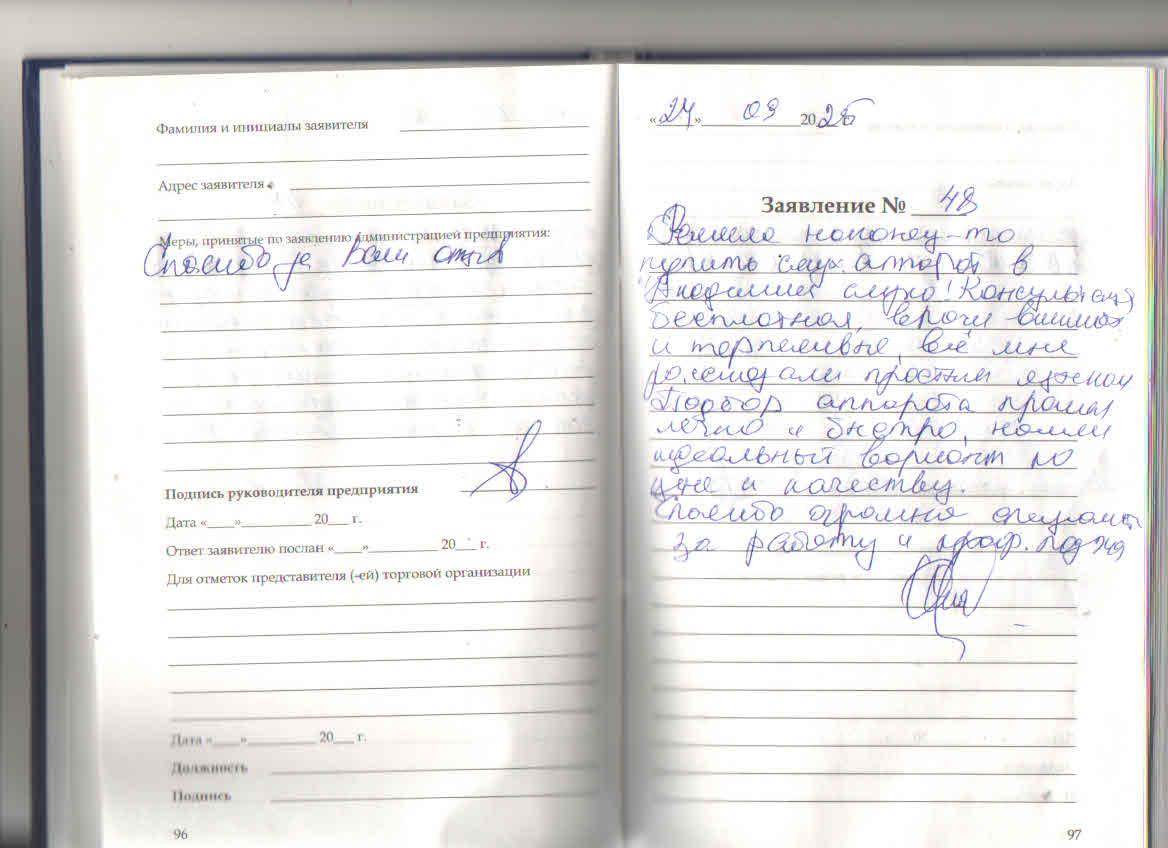 Фамилия и инициалы заявителя
Адрес заявителя
Меры, принятые по заявлению администрацией предприятия:
Спасибо за Ваш отзыв
Подпись руководителя предприятия
Дата «___»__________ 20___ г.
Ответ заявителю послан «___»__________ 20___ г.
Для отметок представителя (-ей) торговой организации
Дата «___»__________ 20___ г.
Должность
Подпись
96
«24» 09 2025
Заявление № 48
Решила наконец-то
купить слух. аппарат в
"Академии слуха! Консультация
бесплатная, врачи вниман
и терпеливые, всё мне
рассказали простым языком
Подбор аппарата прошел
легко и быстро, нашли
идеальный вариант по
цене и качеству.
Спасибо огромное специалистам
за работу и проф. подход
97